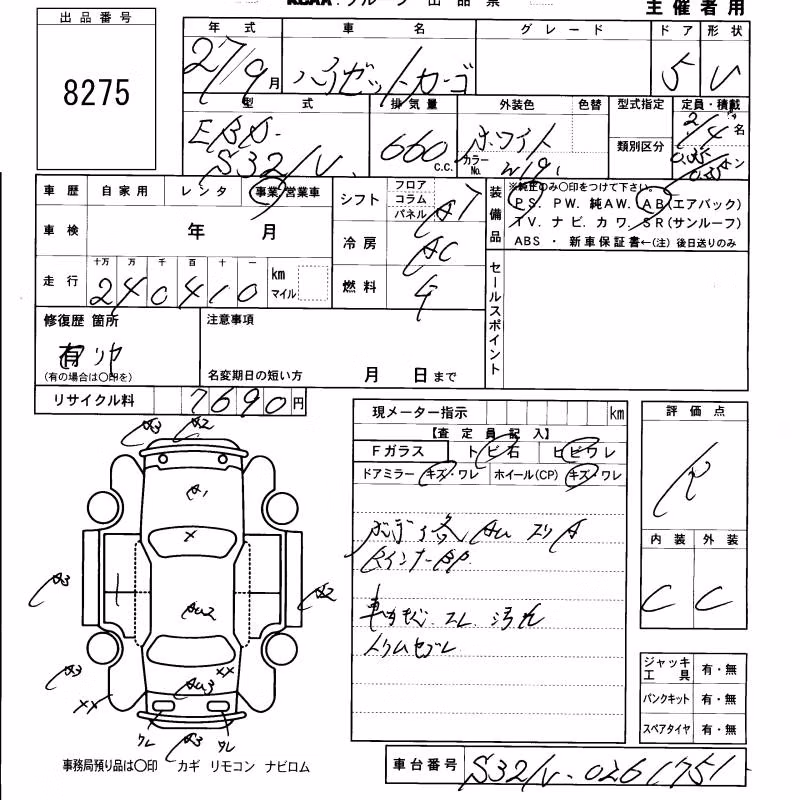 KCAA グループ 出品票
主催者用
出品番号
8275
年式 車名 グレード ドア 形状
27/9月 ハイゼットカーゴ 5 V
型式 排気量 外装色 色替 型式指定 定員・積載
EBD-S321V 660 c.c. ホワイト カラーNo. W19 類別区分 2/4名
車歴 自家用 レンタ 事業 営業車
車検 年 月
走行 十万 万 千 百 十 一
240410 km マイル
シフト フロア コラム パネル AT
冷房 AC
燃料
装備品 ※純正のみ○印をつけて下さい。
PS. PW. 純AW. AB(エアバック)
TV. ナビ. カワ. SR(サンルーフ)
ABS ・ 新車保証書←(注) 後日送りのみ
セールスポイント
修復歴 箇所
有 リヤ
(有の場合は○印を)
注意事項
名変期日の短い方 月 日まで
リサイクル料 7690円
現メーター指示 km
【査定員記入】
Fガラス トビ石 ヒビワレ
ドアミラー キズ・ワレ ホイール(CP) キズ・ワレ
評価点
R
内装 外装
C C
A3 A2
A1
X
A3 AU2 A2
A3 XX
XX AU3
ワレ A3 ワレ
ジャッキ工具 有・無
パンクキット 有・無
スペアタイヤ 有・無
事務局預り品は○印 カギ リモコン ナビロム
車台番号 S321V-0261751